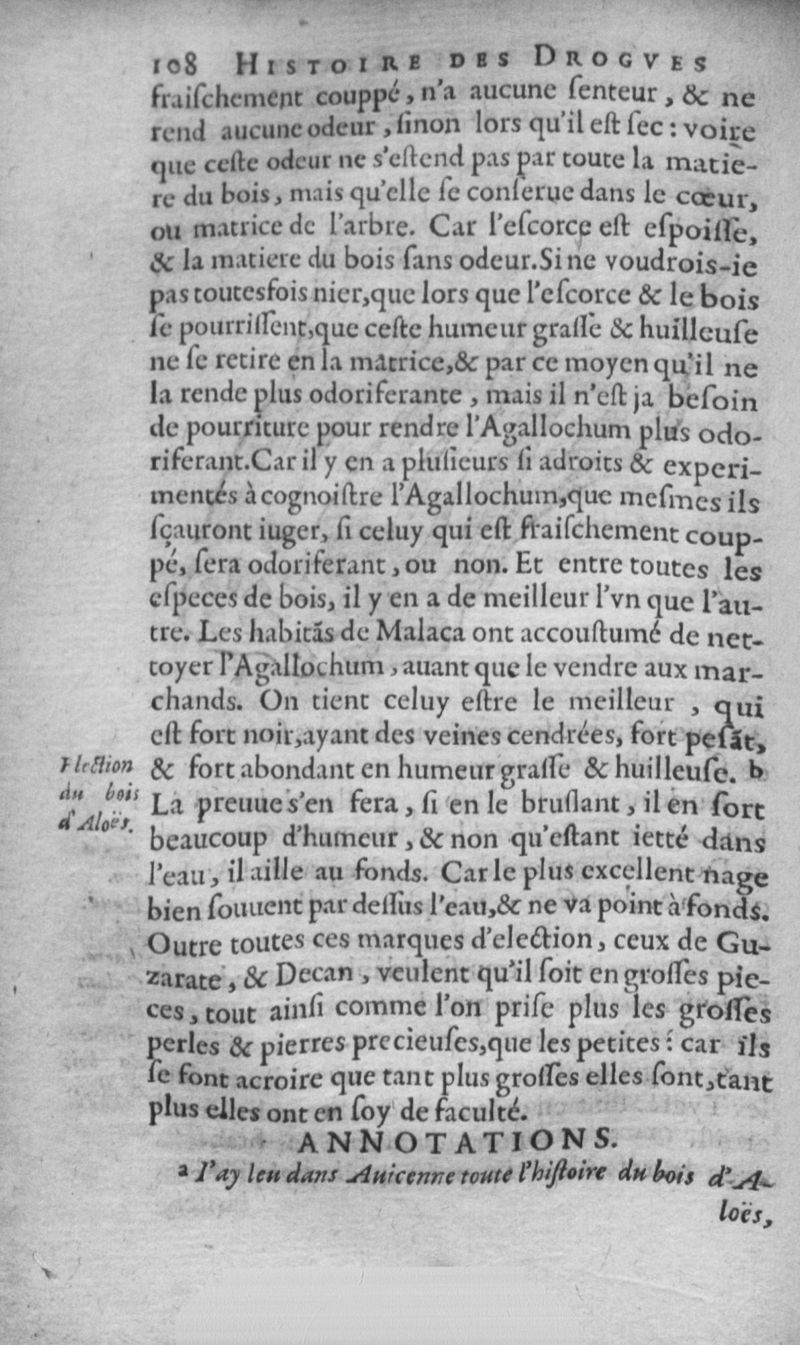 108 HISTOIRE DES DROGVES
fraiſchement couppé, n'a aucune ſenteur, & ne
rend aucune odeur, ſinon lors qu'il eſt ſec: voire
que ceſte odeur ne s'eſtend pas par toute la matiè-
re du bois, mais qu'elle ſe conſerue dans le cœur,
ou matrice de l'arbre. Car l'eſcorce eſt eſpoiſſe,
& la matiere du bois ſans odeur. Si ne voudrois-ie
pas toutesfois nier, que lors que l'eſcorce & le bois
ſe pourriſſent, que ceſte humeur graſſe & huilleuſe
ne ſe retire en la matrice, & par ce moyen qu'il ne
la rende plus odoriferante, mais il n'eſt ja beſoin
de pourriture pour rendre l'Agallochum plus odo-
riferant. Car il y en a pluſieurs ſi adroits & experi-
mentés à cognoiſtre l'Agallochum, que meſmes ils
ſçauront iuger, ſi celuy qui eſt fraiſchement coup-
pé, ſera odoriferant, ou non. Et entre toutes les
eſpeces de bois, il y en a de meilleur l'vn que l'au-
tre. Les habitãs de Malaca ont accouſtumé de net-
toyer l'Agallochum, auant que le vendre aux mar-
chands. On tient celuy eſtre le meilleur, qui
eſt fort noir, ayant des veines cendrées, fort peſãt,
& fort abondant en humeur graſſe & huilleuſe. b
Election
du bois
d'Aloës.
La preuue s'en fera, ſi en le bruſlant, il en ſort
beaucoup d'humeur, & non qu'eſtant ietté dans
l'eau, il aille au fonds. Car le plus excellent nage
bien ſouuent par deſſus l'eau, & ne va point à fonds.
Outre toutes ces marques d'election, ceux de Gu-
zarate, & Decan, veulent qu'il ſoit en groſſes pie-
ces, tout ainſi comme l'on priſe plus les groſſes
perles & pierres precieuſes, que les petites: car ils
ſe font acroire que tant plus groſſes elles ſont, tant
plus elles ont en ſoy de faculté.
ANNOTATIONS.
a I'ay leu dans Auicenne toute l'hiſtoire du bois d'A-
loës,